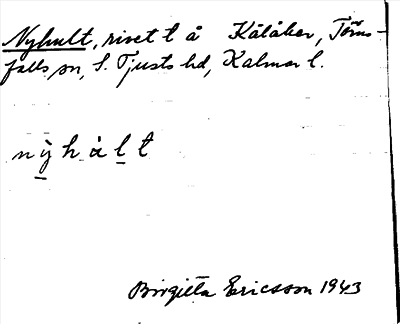 Nyhult, rivet t å Kålåker, Törns-
falls sn, S. Tjusts hd, Kalmar l.
nỳhàl̲t
Birgitta Ericsson 1943